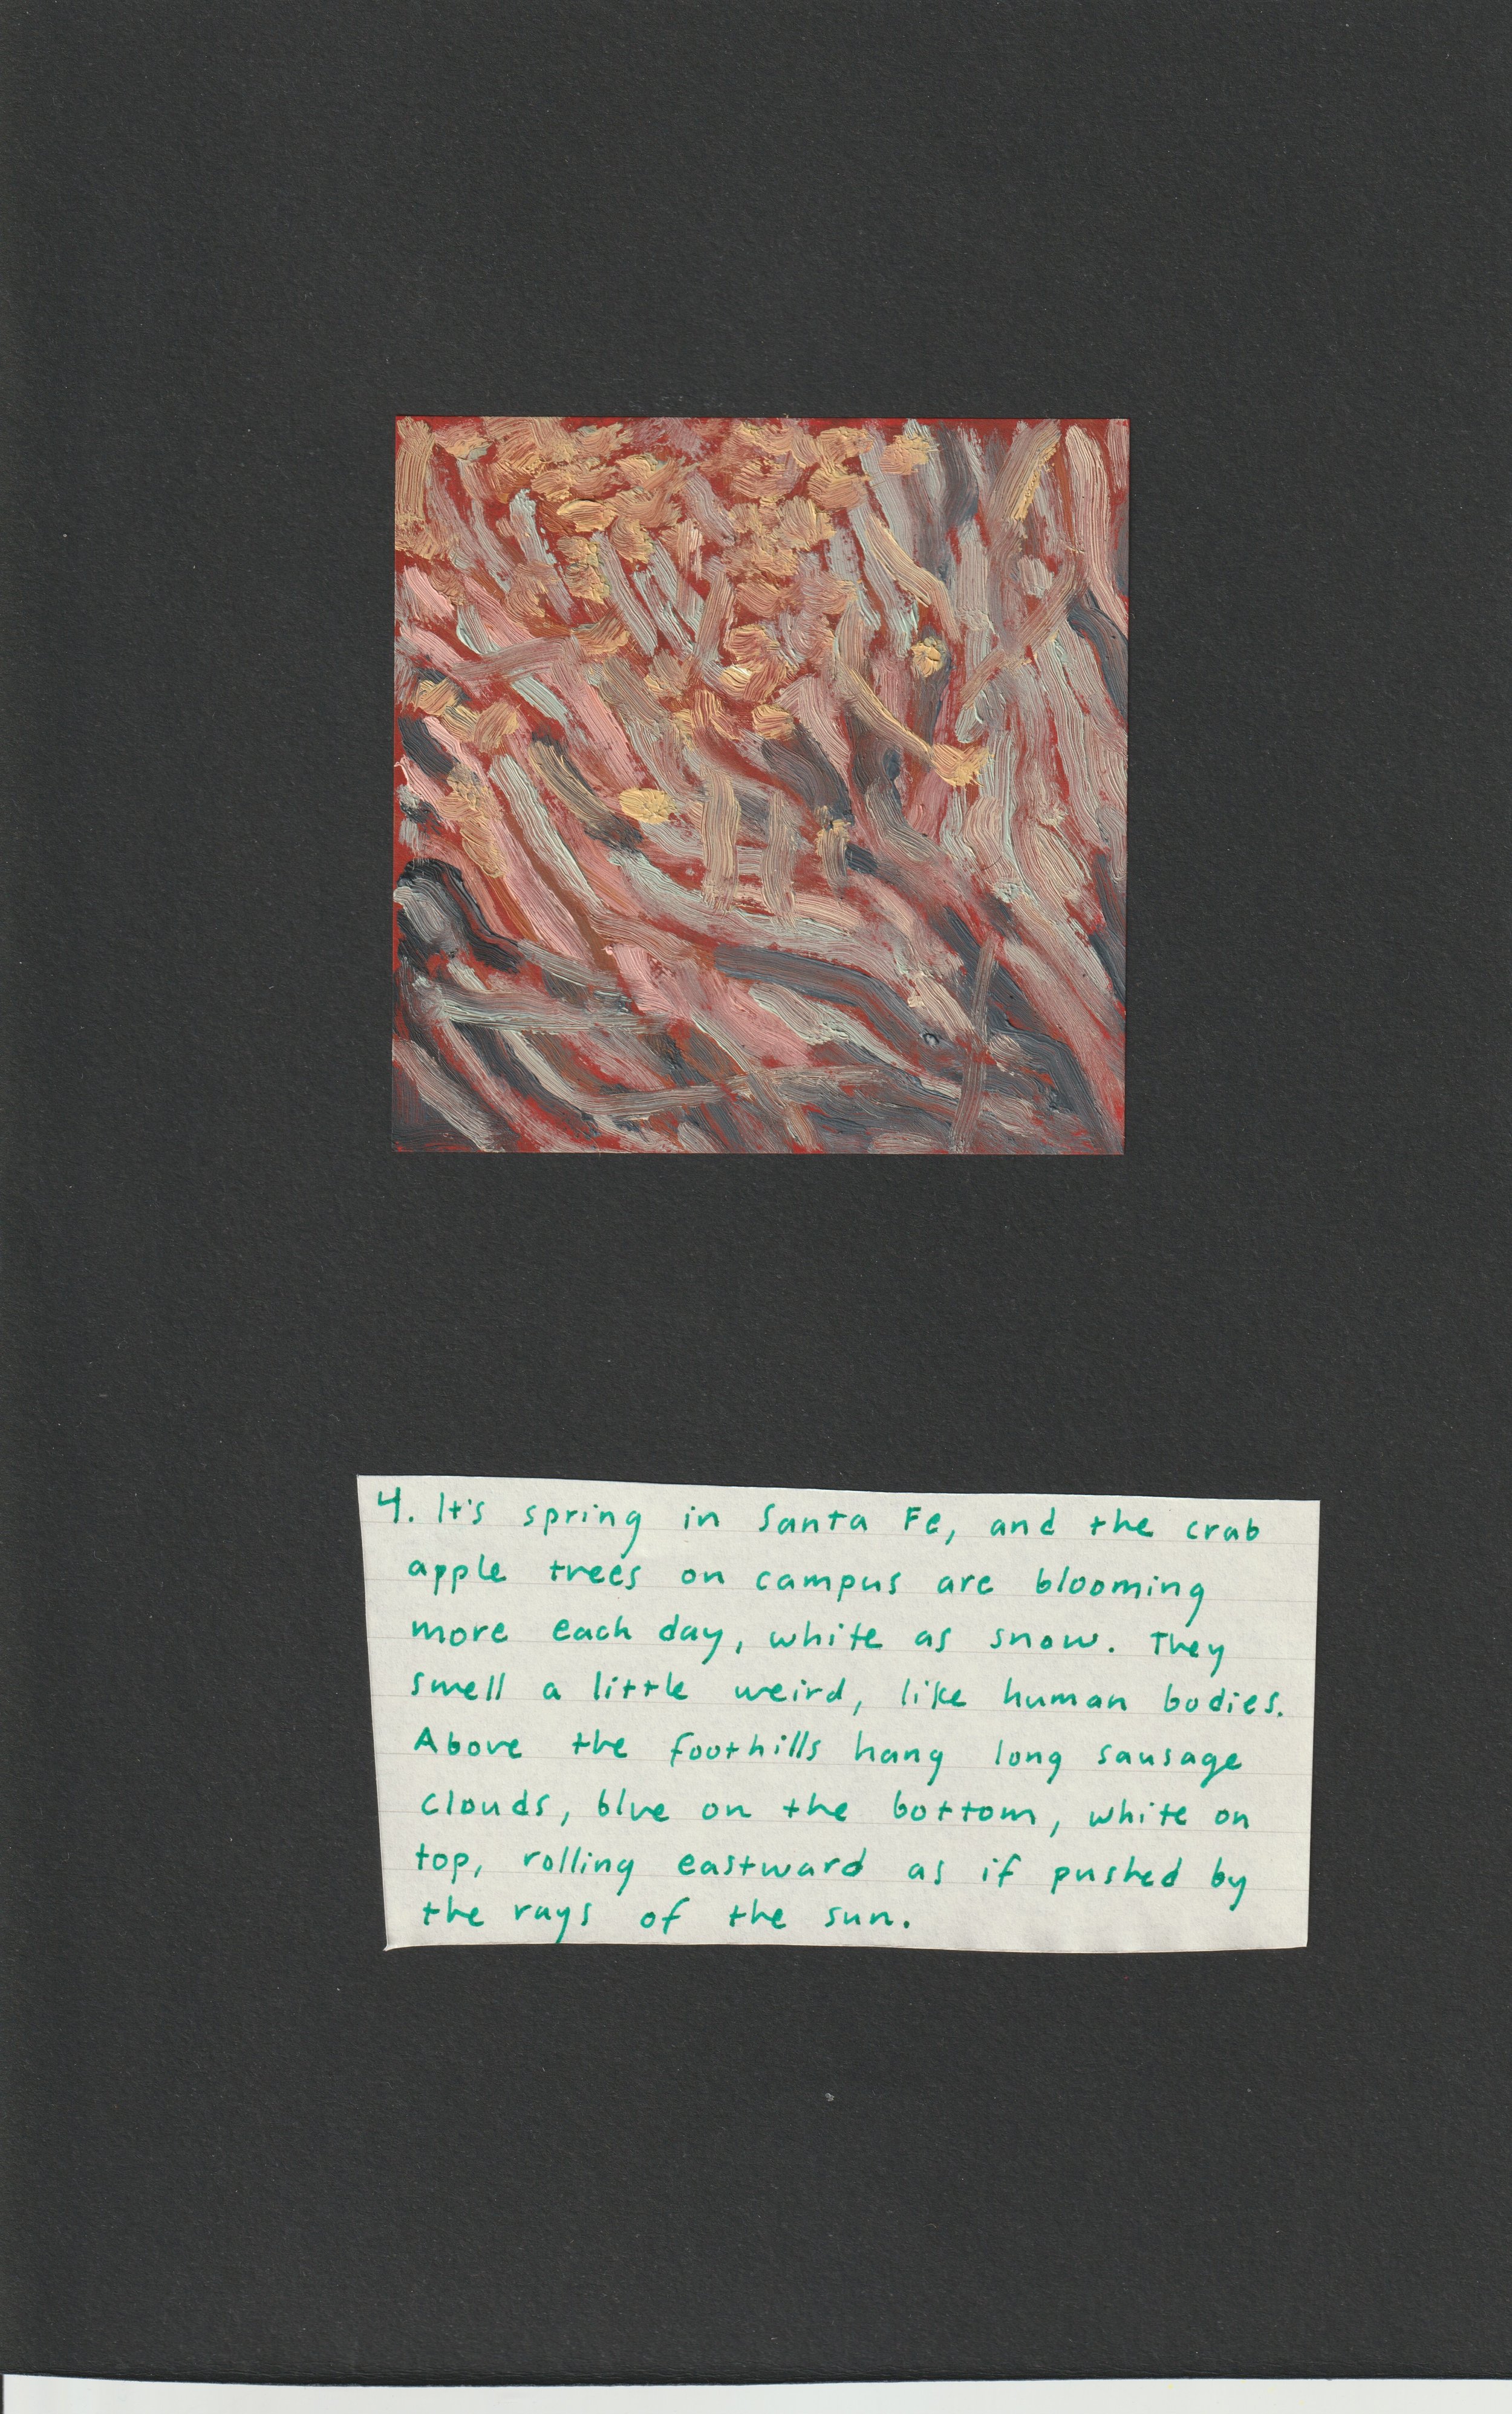 4. It's spring in Santa Fe, and the crab
apple trees on campus are blooming
more each day, white as snow. They
smell a little weird, like human bodies.
Above the foothills hang long sausage
clouds, blue on the bottom, white on
top, rolling eastward as if pushed by
the rays of the sun.